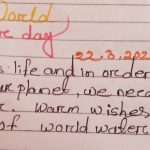 World
day
22.3.202
life and in order
planet, we need
Warm wishes
of world water